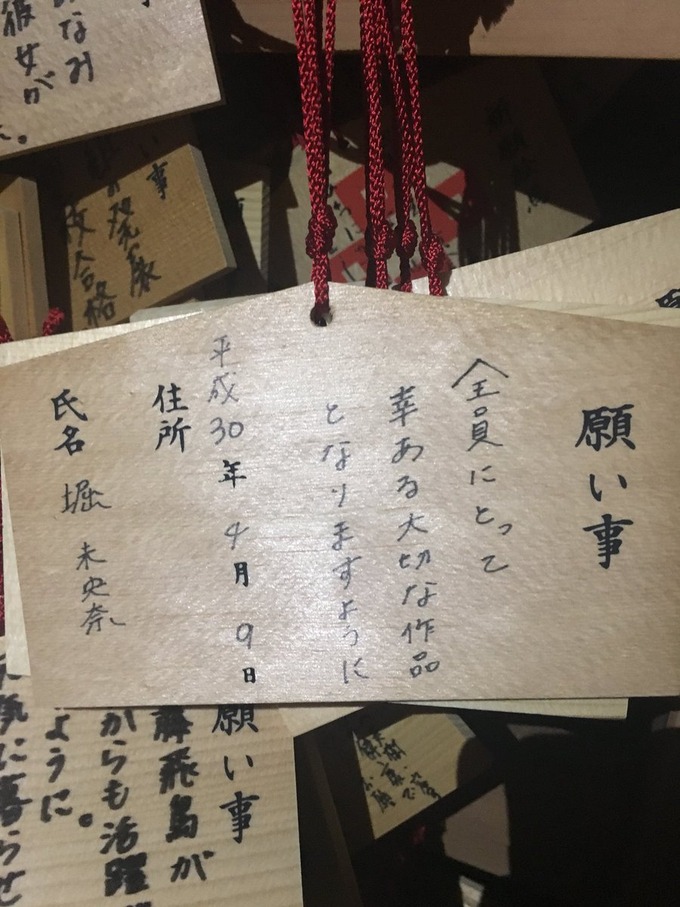 願い事
全員にとって
幸ある大切な作品
となりますように
平成30年4月9日
住所
氏名 堀 未央奈
なみ
彼女が
い事
合格
願い事
藤飛鳥が
からも活躍
ように。
に暮らせ